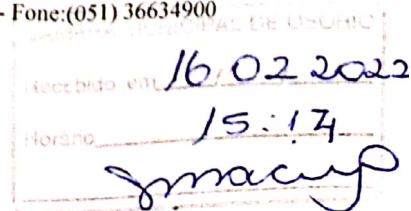 - Fone:(051) 36634900
CÂMARA MUNICIPAL DE OSÓRIO
Recebido em 16 02 2022
Horário 15:14